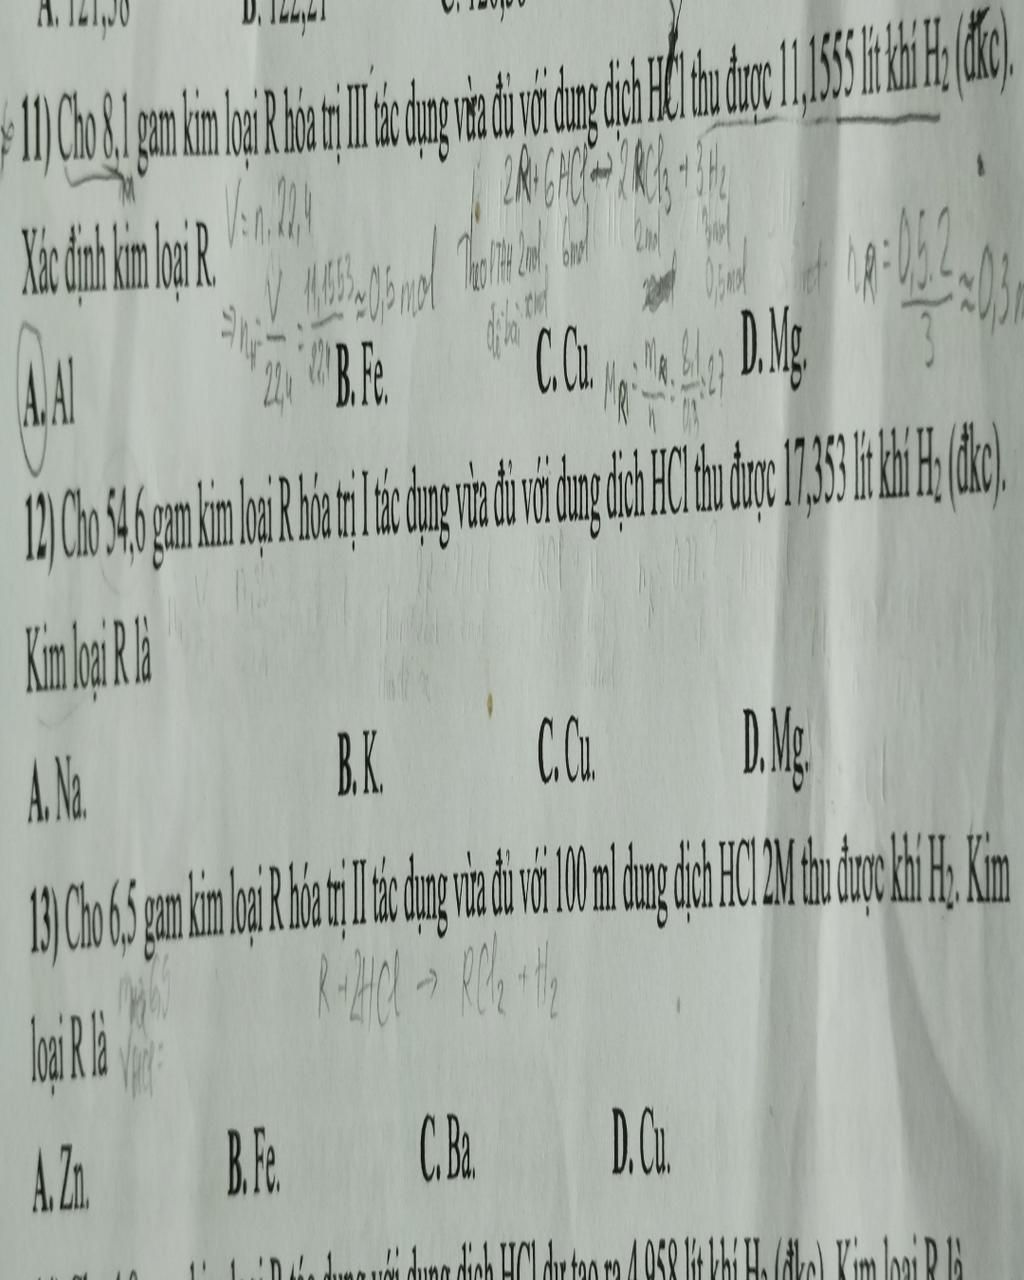 A. 121,58 D. 122,21
11) Cho 8,1 gam kim loại R hóa trị III tác dụng vừa đủ với dung dịch HCl thu được 11,1555 lít khí H₂ (đkc).
2R + 6HCl → 2RCl₃ + 3H₂
Xác định kim loại R.
V = n.22,4
Theo PTHH 2mol 6mol 2mol 3mol
đề bài 0,5mol
⇒ n = V/22,4 = 11,1553/22,4 ≈ 0,5 mol
nR = 0,5.2/3 ≈ 0,3
MR = mR/n = 8,1/0,3 = 27
A. Al B. Fe. C. Cu. D. Mg.
12) Cho 54,6 gam kim loại R hóa trị I tác dụng vừa đủ với dung dịch HCl thu được 17,353 lít khí H₂ (đkc).
Kim loại R là
A. Na. B. K. C. Cu. D. Mg.
13) Cho 6,5 gam kim loại R hóa trị II tác dụng vừa đủ với 100 ml dung dịch HCl 2M thu được khí H₂. Kim
R + 2HCl → RCl₂ + H₂
loại R là
A. Zn. B. Fe. C. Ba. D. Cu.
tác dụng với dung dịch HCl dư tạo ra 4,958 lít khí H₂ (đkc). Kim loại R là